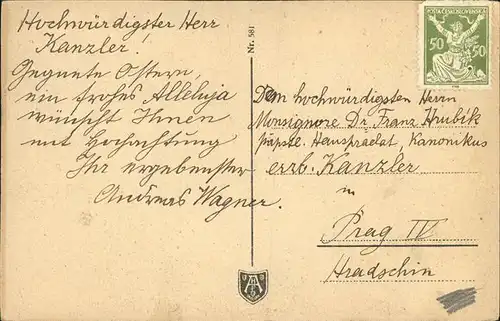 Hochwürdigster Herr
Kanzler!
Gegnete Ostern,
ein frohes Alleluja
wünscht Ihnen
mit Hochachtung
Ihr ergebenster
Andreas Wagner.
Nr. 581
POŠTA ČESKOSLOVENSKÁ
50 50
Dem hochwürdigsten Herrn
Monsignore Dr. Franz Hrubik
päpstl. Hauspraelat, Kanonikus
erzb. Kanzler
in
Prag IV
Hradschin